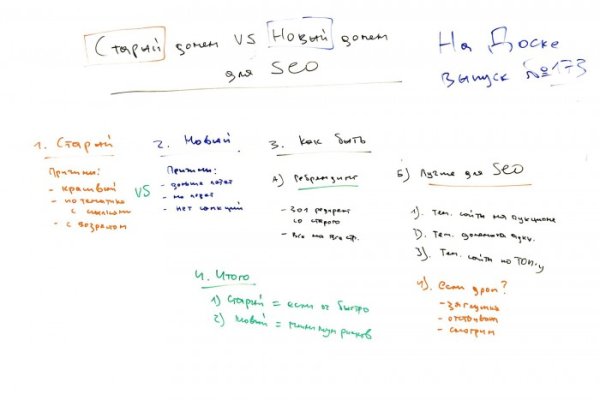 Старый домен VS Новый домен
для SEO
На Доске
выпуск №173
1. Старый
Причины:
- красивый
- по тематике
с ссылками
- с возрастом
VS
2. Новый
Причины:
- дольше
- нет санкций
3. Как быть
А) Ребрендинг
- 301 редирект
со старого
- Все на все стр.
Б) Лучше для SEO
1). Тем. сайты на аукционе
2). Тем. домены аукц.
3). Тем. сайты по ТОП-у
4). если дроп?
- загрузив
- смотрим
4. Итого
1) Старый = если ок быстро
2) Новый = минимум рисков